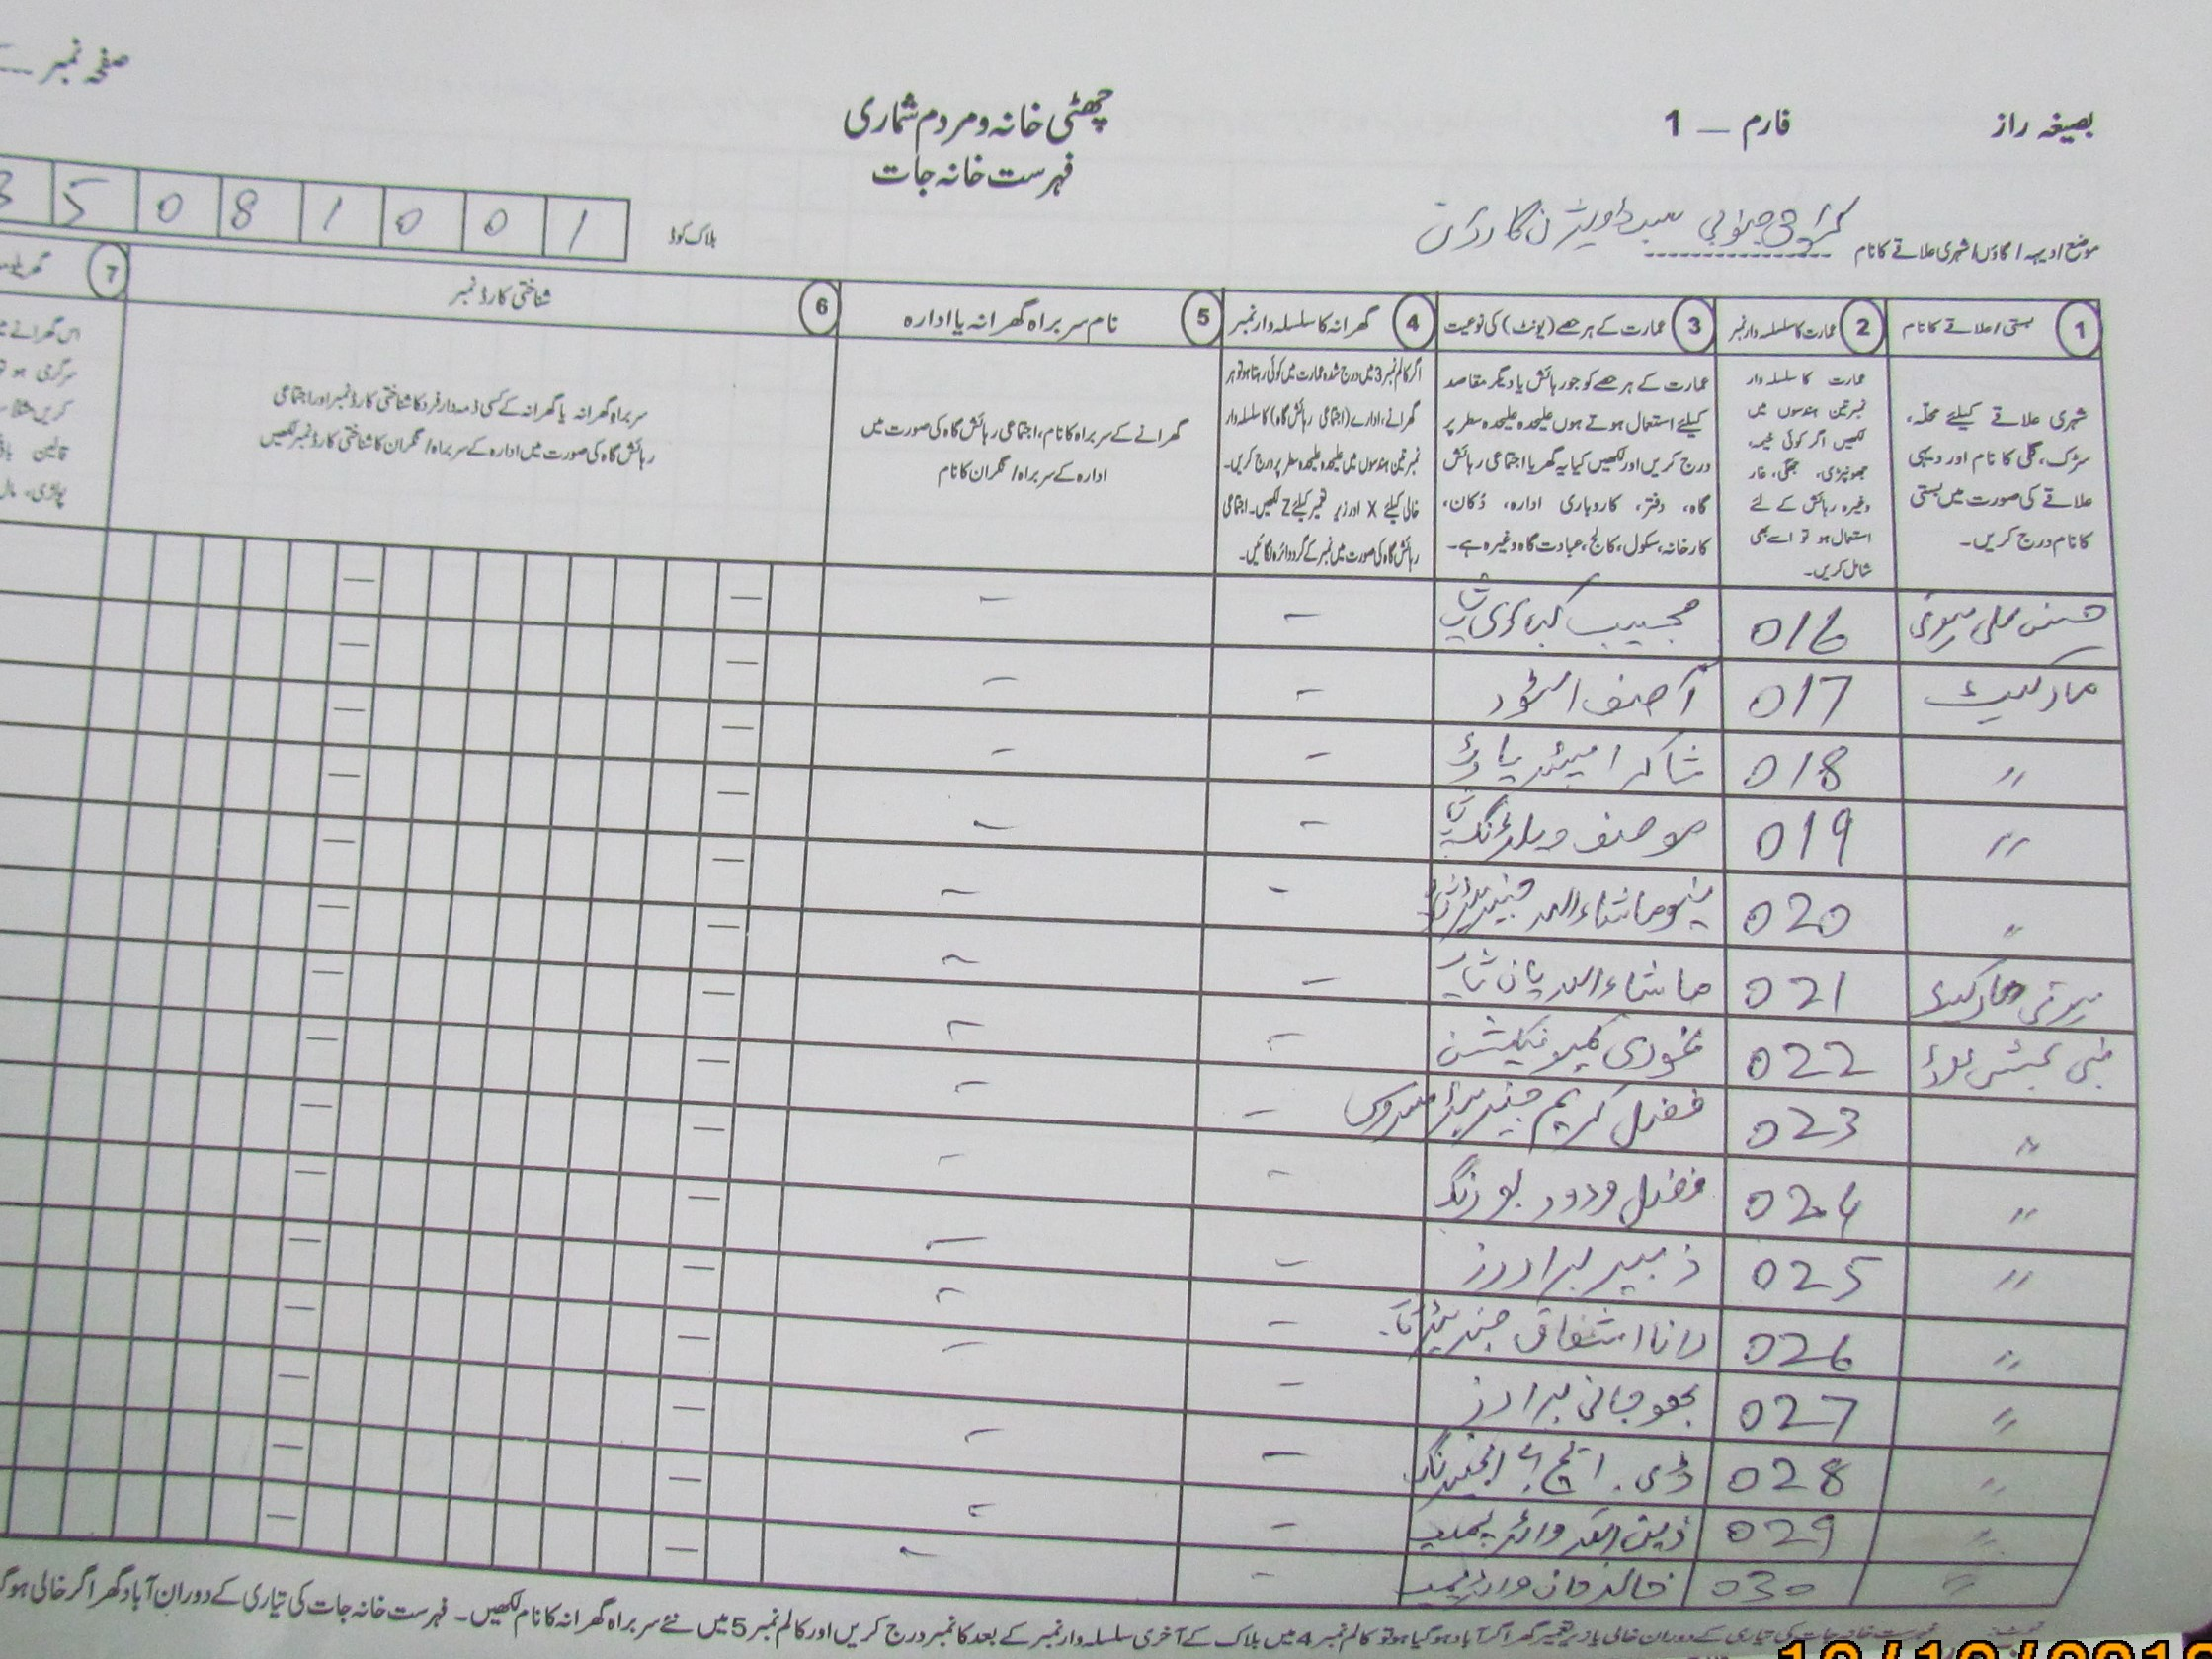 صفحہ نمبر
بصیغہ راز
فارم — 1
چھٹی خانہ و مردم شماری
فہرست خانہ جات
موضع / دیہہ / گاؤں / شہری علاقے کا نام کراچی جنوبی سب ڈویژن گارڈن
بلاک کوڈ 3 5 0 8 1 0 0 1
1 بستی / علاقے کا نام
2 عمارت کا سلسلہ وار نمبر
3 عمارت کے ہر حصے (یونٹ) کی نوعیت
4 گھرانہ کا سلسلہ وار نمبر
5 نام سربراہ گھرانہ یا ادارہ
6 شناختی کارڈ نمبر
7
شہری علاقے کیلئے محلّہ،
سڑک، گلی کا نام اور دیہی
علاقے کی صورت میں بستی
کا نام درج کریں۔
عمارت کا سلسلہ وار
نمبر تین ہندسوں میں
لکھیں اگر کوئی خیمہ،
جھونپڑی، جھگی، غار
وغیرہ رہائش کے لئے
استعمال ہو تو اسے بھی
شامل کریں۔
عمارت کے ہر حصے کو جو رہائش یا دیگر مقاصد
کیلئے استعمال ہوتے ہوں علیحدہ علیحدہ سطر پر
درج کریں اور لکھیں کیا یہ گھر یا اجتماعی رہائش
گاہ، دفتر، کاروباری ادارہ، دُکان،
کارخانہ، سکول، کالج، عبادت گاہ وغیرہ ہے۔
اگر کالم نمبر 3 میں درج شدہ عمارت میں کوئی رہتا ہو تو ہر
گھرانے، ادارے (اجتماعی رہائش گاہ) کا سلسلہ وار
نمبر تین ہندسوں میں علیحدہ علیحدہ سطر پر درج کریں۔
خالی کیلئے X اور زیر تعمیر کیلئے Z لکھیں۔ اجتماعی
رہائش گاہ کی صورت میں نمبر کے گرد دائرہ لگائیں۔
گھرانے کے سربراہ کا نام، اجتماعی رہائش گاہ کی صورت میں
ادارہ کے سربراہ / نگران کا نام
سربراہ گھرانہ یا گھرانہ کے کسی ذمہ دار فرد کا شناختی کارڈ نمبر اور اجتماعی
رہائش گاہ کی صورت میں ادارہ کے سربراہ / نگران کا شناختی کارڈ نمبر لکھیں
اس گھرانے
سرگرمی ہو تو
کریں مثلاً
قالین
پولٹری، مال
حسن علی ہوتی 016 مجیب کباڑی شاپ
مارکیٹ 017 آصف اسٹور
〃 018 شاکر
〃 019 ویلڈنگ
〃 020 نیو ماشاءاللہ
مارکیٹ 021 ماشاءاللہ پان شاپ
نبی بخش روڈ 022 غوری کمیونیکیشن
〃 023 فضل کریم جنریٹر سروس
〃 024 فضل ودود بورنگ
〃 025 زبیر برادرز
〃 026 رانا اشفاق جنریٹر
〃 027 بھوجانی برادرز
〃 028 ڈی. ایچ اے انجینئرنگ
〃 029 واٹر پمپ
〃 030 خالد خان واٹر پمپ
فہرست خانہ جات کی تیاری کے دوران خالی یا زیر تعمیر گھر اگر آباد ہو گیا ہو تو کالم نمبر 4 میں بلاک کے آخری سلسلہ وار نمبر کے بعد کا نمبر درج کریں اور کالم نمبر 5 میں نئے سربراہ گھرانہ کا نام لکھیں۔ فہرست خانہ جات کی تیاری کے دوران آباد گھر اگر خالی ہو